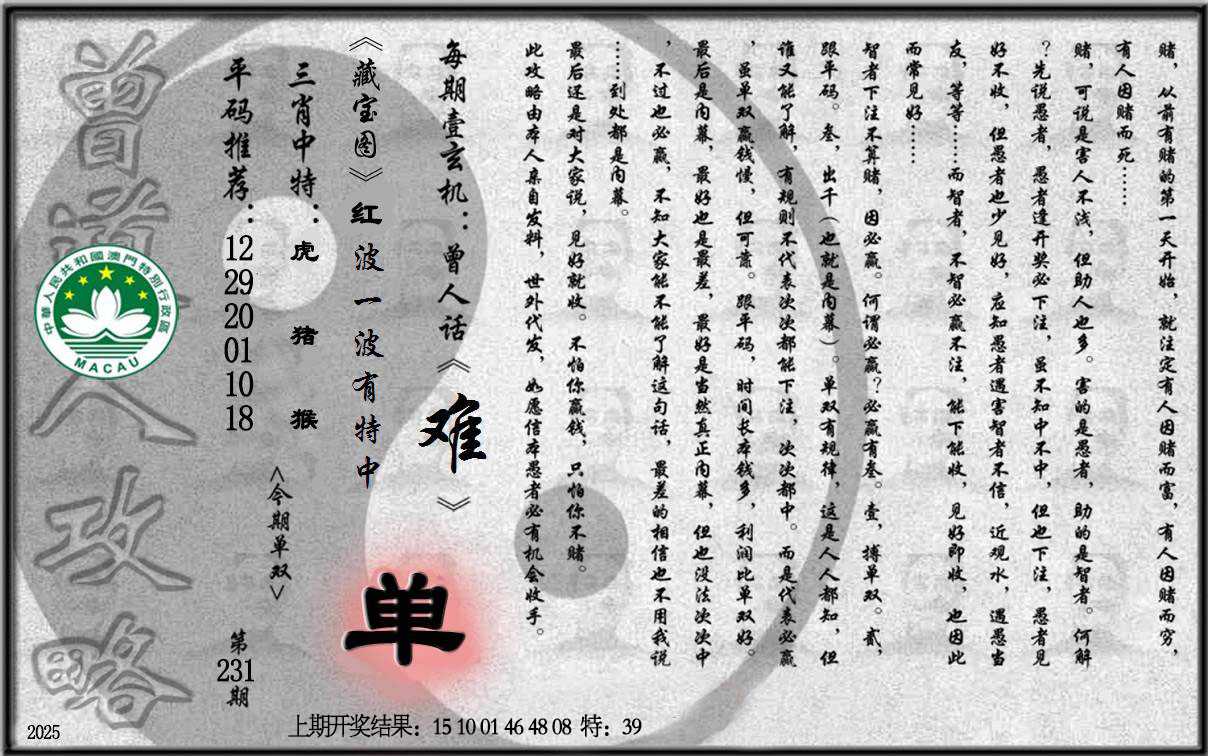 赌，从前有赌的第一天开始，就注定有人因赌而富，有人因赌而穷，
有人因赌而死……
赌，可说是害人不浅，但助人也多。害的是愚者，助的是智者。何解
？先说愚者，愚者逢开奖必下注，虽不知中不中，但也下注，愚者见
好不收，但愚者也少见好，应知愚者遇害智者不信，近观水，遇愚当
友，等等……而智者，不智必赢不注，能下能收，见好即收，也因此
而常见好……
智者下注不算赌，因必赢。何谓必赢？必赢有叁。壹，搏单双。贰，
跟平码。叁，出千（也就是内幕）。单双有规律，这是人人都知，但
谁又能了解，有规则不代表次次都能下注，次次都中。而是代表必赢
，虽单双赢钱慢，但可靠。跟平码，时间长本钱多，利润比单双好。
最后是内幕，最好也是最差，最好是当然真正内幕，但也没法次次中
，不过也必赢，不知大家能不能了解这句话，最差的相信也不用我说
……到处都是内幕。
最后还是对大家说，见好就收。不怕你赢钱，只怕你不赌。
此攻略由本人亲自发料，世外代发，如愿信本愚者必有机会收手。
每期壹玄机：曾人话《难》
《藏宝图》红波一波有特中
单
三肖中特：虎 猪 猴
<今期单双>
平码推荐：12 29 20 01 10 18
第231期
曾道人攻略
中華人民共和國澳門特別行政區
MACAU
上期开奖结果：15 10 01 46 48 08 特：39
2025